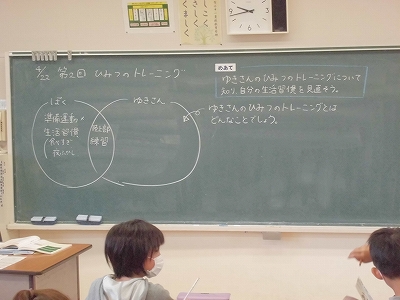 4/22 第2回 ひみつのトレーニング
めあて
ゆきさんのひみつのトレーニングについて
知り、自分の生活習慣を見直そう。
ぼく
準備運動
生活習慣
食べすぎ
夜ふかし
ゆきさん
練習
ゆきさんのひみつのトレーニングとは
どんなことでしょう。